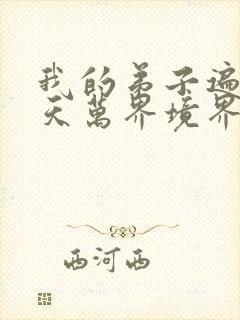 我的弟子遍
天萬界境界
西河西